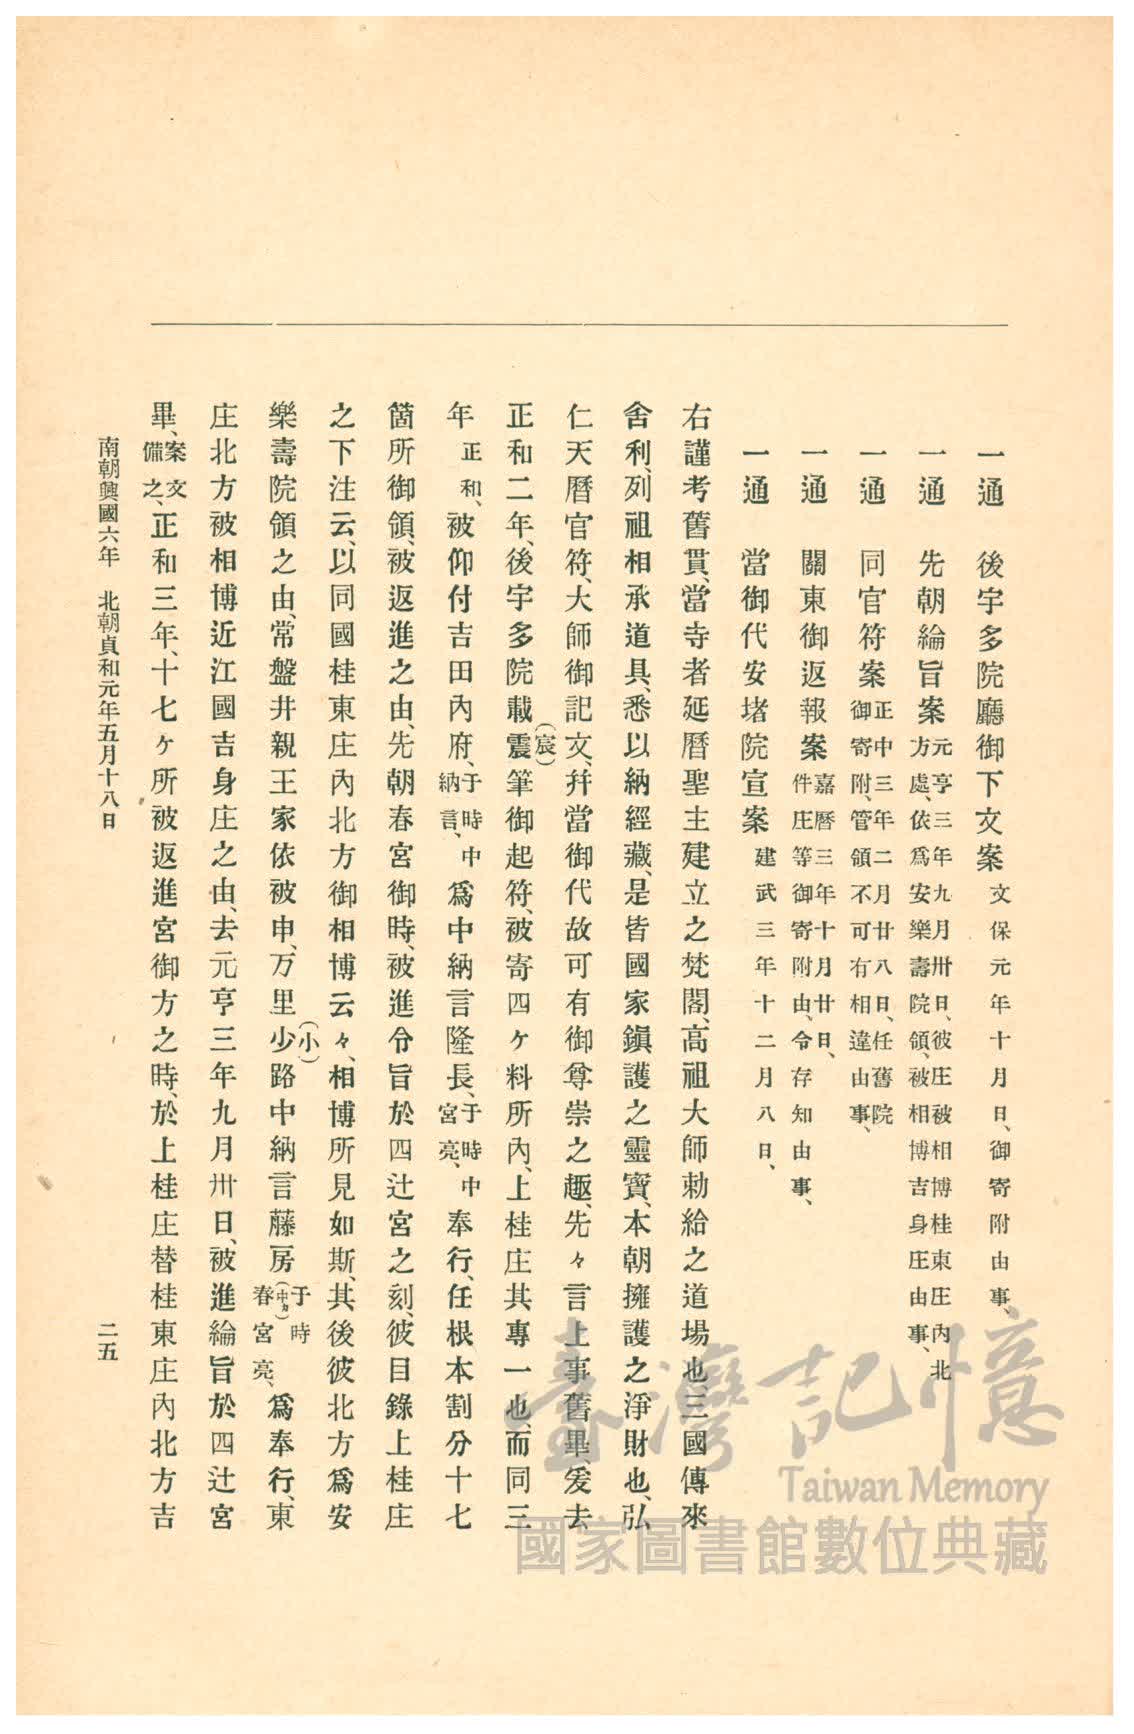 一通　後宇多院廳御下文案 文保元年十月日、御寄附由事、
一通　先朝綸旨案 元亨三年九月卅日、彼庄被相博桂東庄內北方處、依爲安樂壽院領、被相博吉身庄由事、
一通　同官符案 正中三年二月廿八日、任舊院御寄附、管領不可有相違由事、
一通　關東御返報案 嘉曆三年十月廿日、件庄等御寄附由、令存知由事、
一通　當御代安堵院宣案 建武三年十二月八日、
右謹考舊貫、當寺者延曆聖主建立之梵閣、高祖大師勅給之道場也、三國傳來
舍利、列祖相承道具、悉以納經藏、是皆國家鎭護之靈寳、本朝擁護之淨財也、弘
仁天曆官符、大師御記文、幷當御代故可有御尊崇之趣、先々言上事舊畢、爰去
正和二年、後宇多院載震(宸)筆御起符、被寄四ケ料所內、上桂庄其專一也、而同三
年 正和、被仰付吉田內府、于時中納言、爲中納言隆長、于時中宮亮、奉行、任根本割分十七
箇所御領、被返進之由、先朝春宮御時、被進令旨於四辻宮之刻、彼目錄上桂庄
之下注云、以同國桂東庄內北方御相博云々、相博所見如斯、其後彼北方爲安
樂壽院領之由、常盤井親王家依被申、万里少(小)路中納言藤房 于時春(中カ)宮亮、爲奉行、東
庄北方被相博近江國吉身庄之由、去元亨三年九月卅日、被進綸旨於四辻宮
畢、案文備之、正和三年、十七ケ所被返進宮御方之時、於上桂庄替桂東庄內北方吉
南朝興國六年　北朝貞和元年五月十八日
二五
臺灣記憶
Taiwan Memory
國家圖書館數位典藏